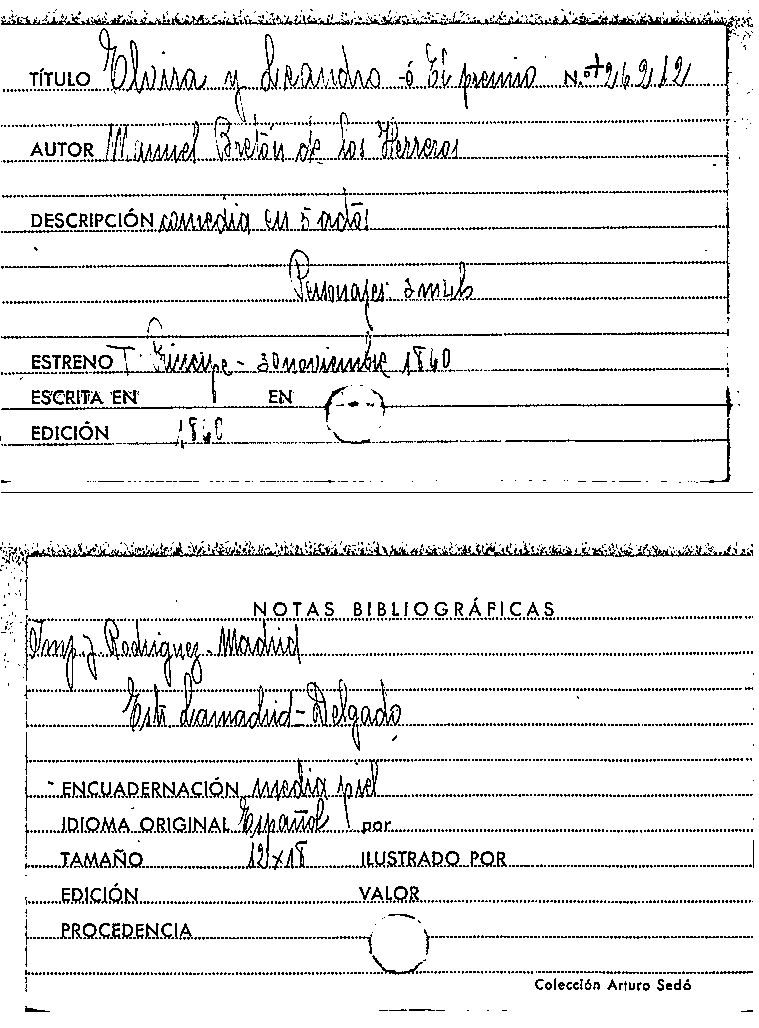 TÍTULO Elvira y Leandro - ó El premio N.º +26212
AUTOR Manuel Bretón de los Herreros
DESCRIPCIÓN comedia en 5 actos
Personajes
ESTRENO T. Principe - 30 noviembre 1860
ESCRITA EN EN
EDICIÓN 1860
NOTAS BIBLIOGRÁFICAS
Imp. J. Rodriguez - Madrid
Lamadrid - Delgado
ENCUADERNACIÓN media piel
IDIOMA ORIGINAL Español por
TAMAÑO 12 x 18 ILUSTRADO POR
EDICIÓN VALOR
PROCEDENCIA
Colección Arturo Sedó